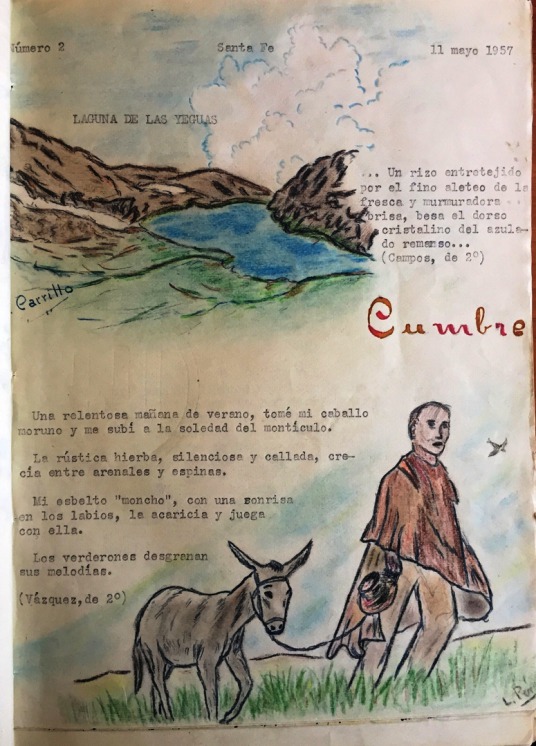 Número 2 Santa Fe 11 mayo 1957
LAGUNA DE LAS YEGUAS
... Un rizo entretejido
por el fino aleteo de la
fresca y murmuradora
brisa, besa el dorso
cristalino del azula-
do remanso...
(Campos, de 2º)
Carrillo
Cumbre
Una relentosa mañana de verano, tomé mi caballo
moruno y me subí a la soledad del montículo.
La rústica hierba, silenciosa y callada, cre-
cía entre arenales y espinas.
Mi esbelto "moncho", con una sonrisa
en los labios, la acaricia y juega
con ella.
Los verderones desgranan
sus melodías.
(Vázquez, de 2º)
L.